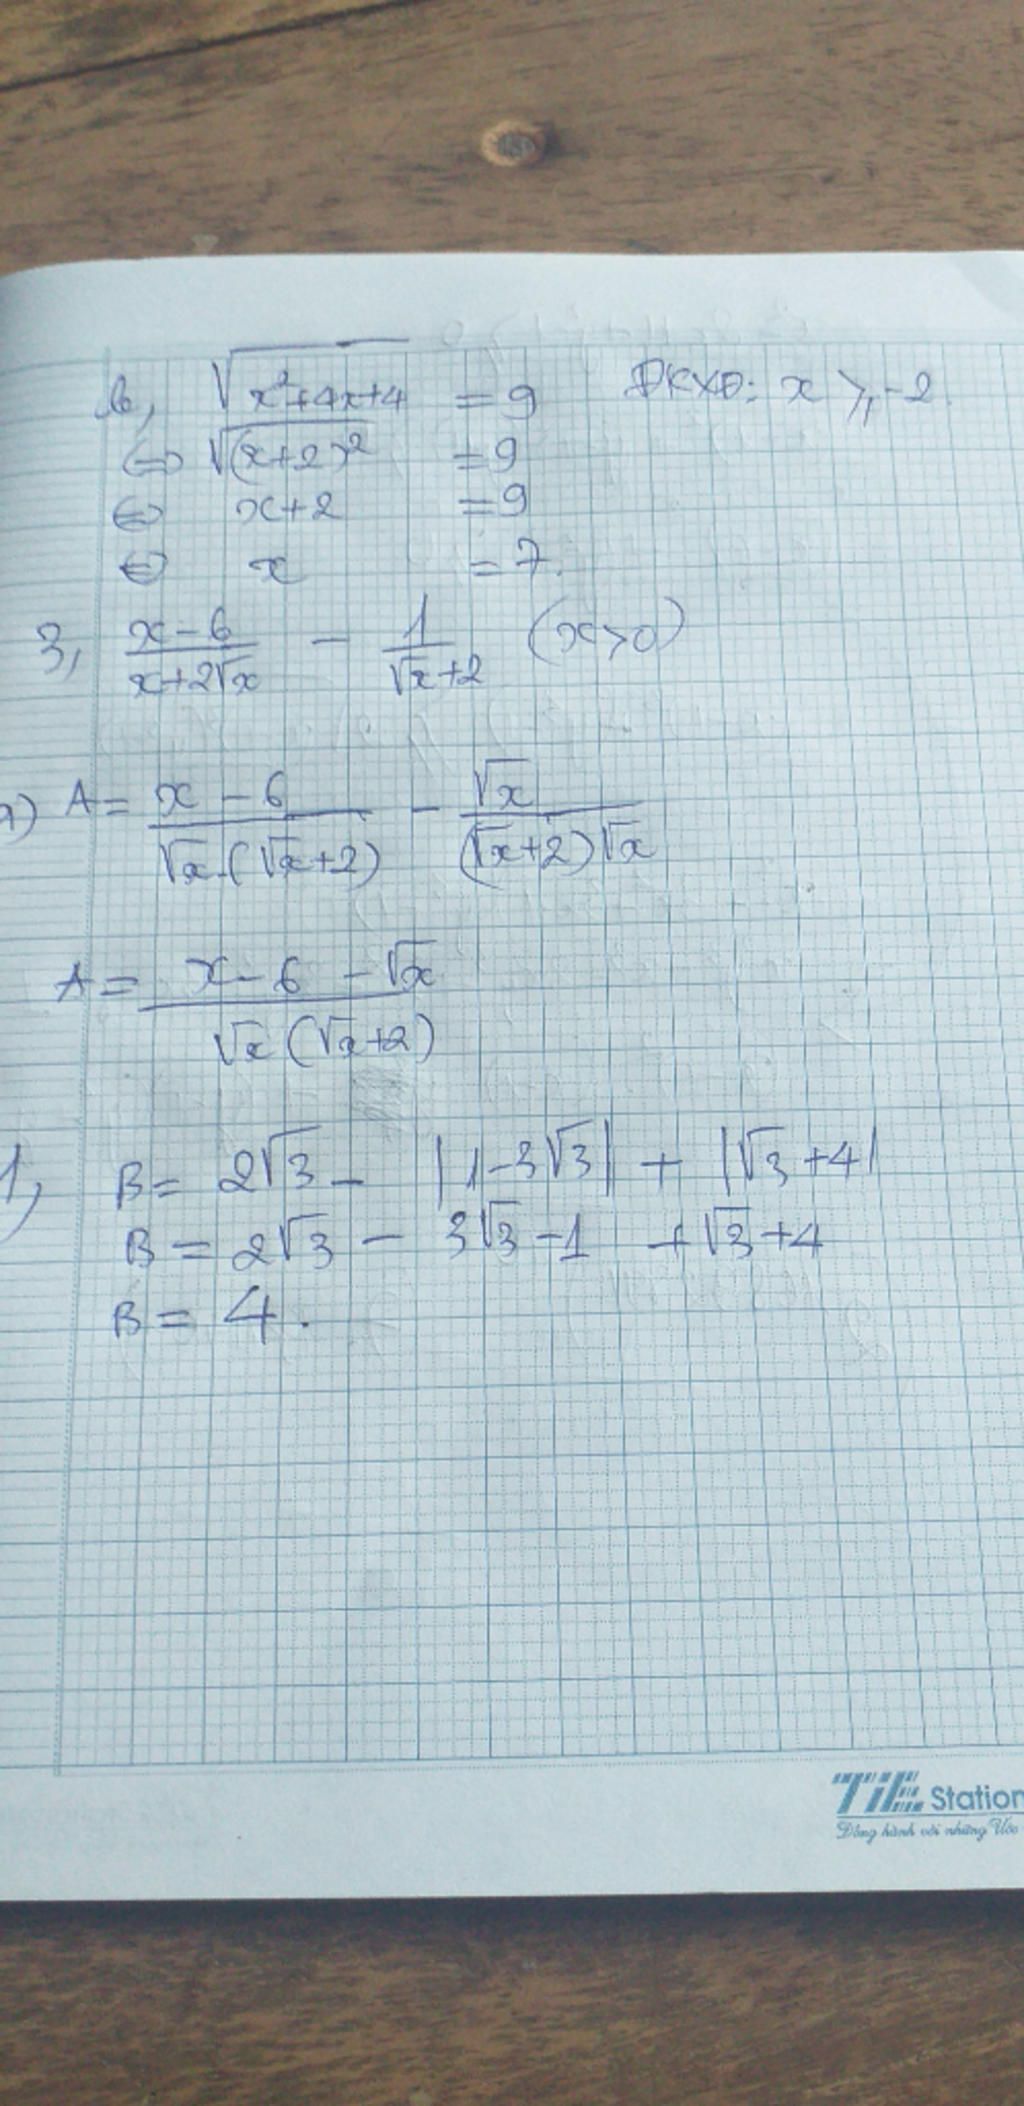 b, √(x²+4x+4) = 9 ĐKXĐ: x ⩾ -2.
⇔ √(x+2)² = 9
⇔ x+2 = 9
⇔ x = 7.
3, (x-6)/(x+2√x) - 1/(√x+2) (x>0)
a) A = (x-6)/(√x.(√x+2)) - √x/((√x+2)√x)
A = (x-6-√x)/(√x(√x+2))
1, B = 2√3 - |1-3√3| + |√3+4|
B = 2√3 - 3√3-1 +√3+4
B = 4.
TiE Station
Đồng hành với những Ước